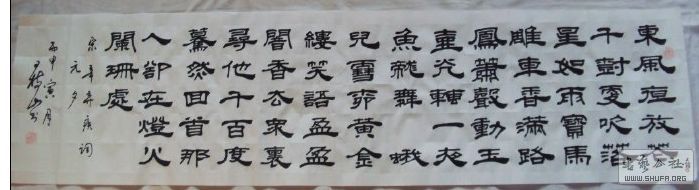 東風夜放花
千樹更吹落
星如雨寶馬
雕車香滿路
鳳簫聲動玉
壺光轉一夜
魚龍舞蛾
兒雪柳黃金
縷笑語盈盈
闇香去衆裏
尋他千百度
驀然回首那
人卻在燈火
闌珊處
宋辛弃疾詞
元夕
丙申寅月
WWW.SHUFA.ORG